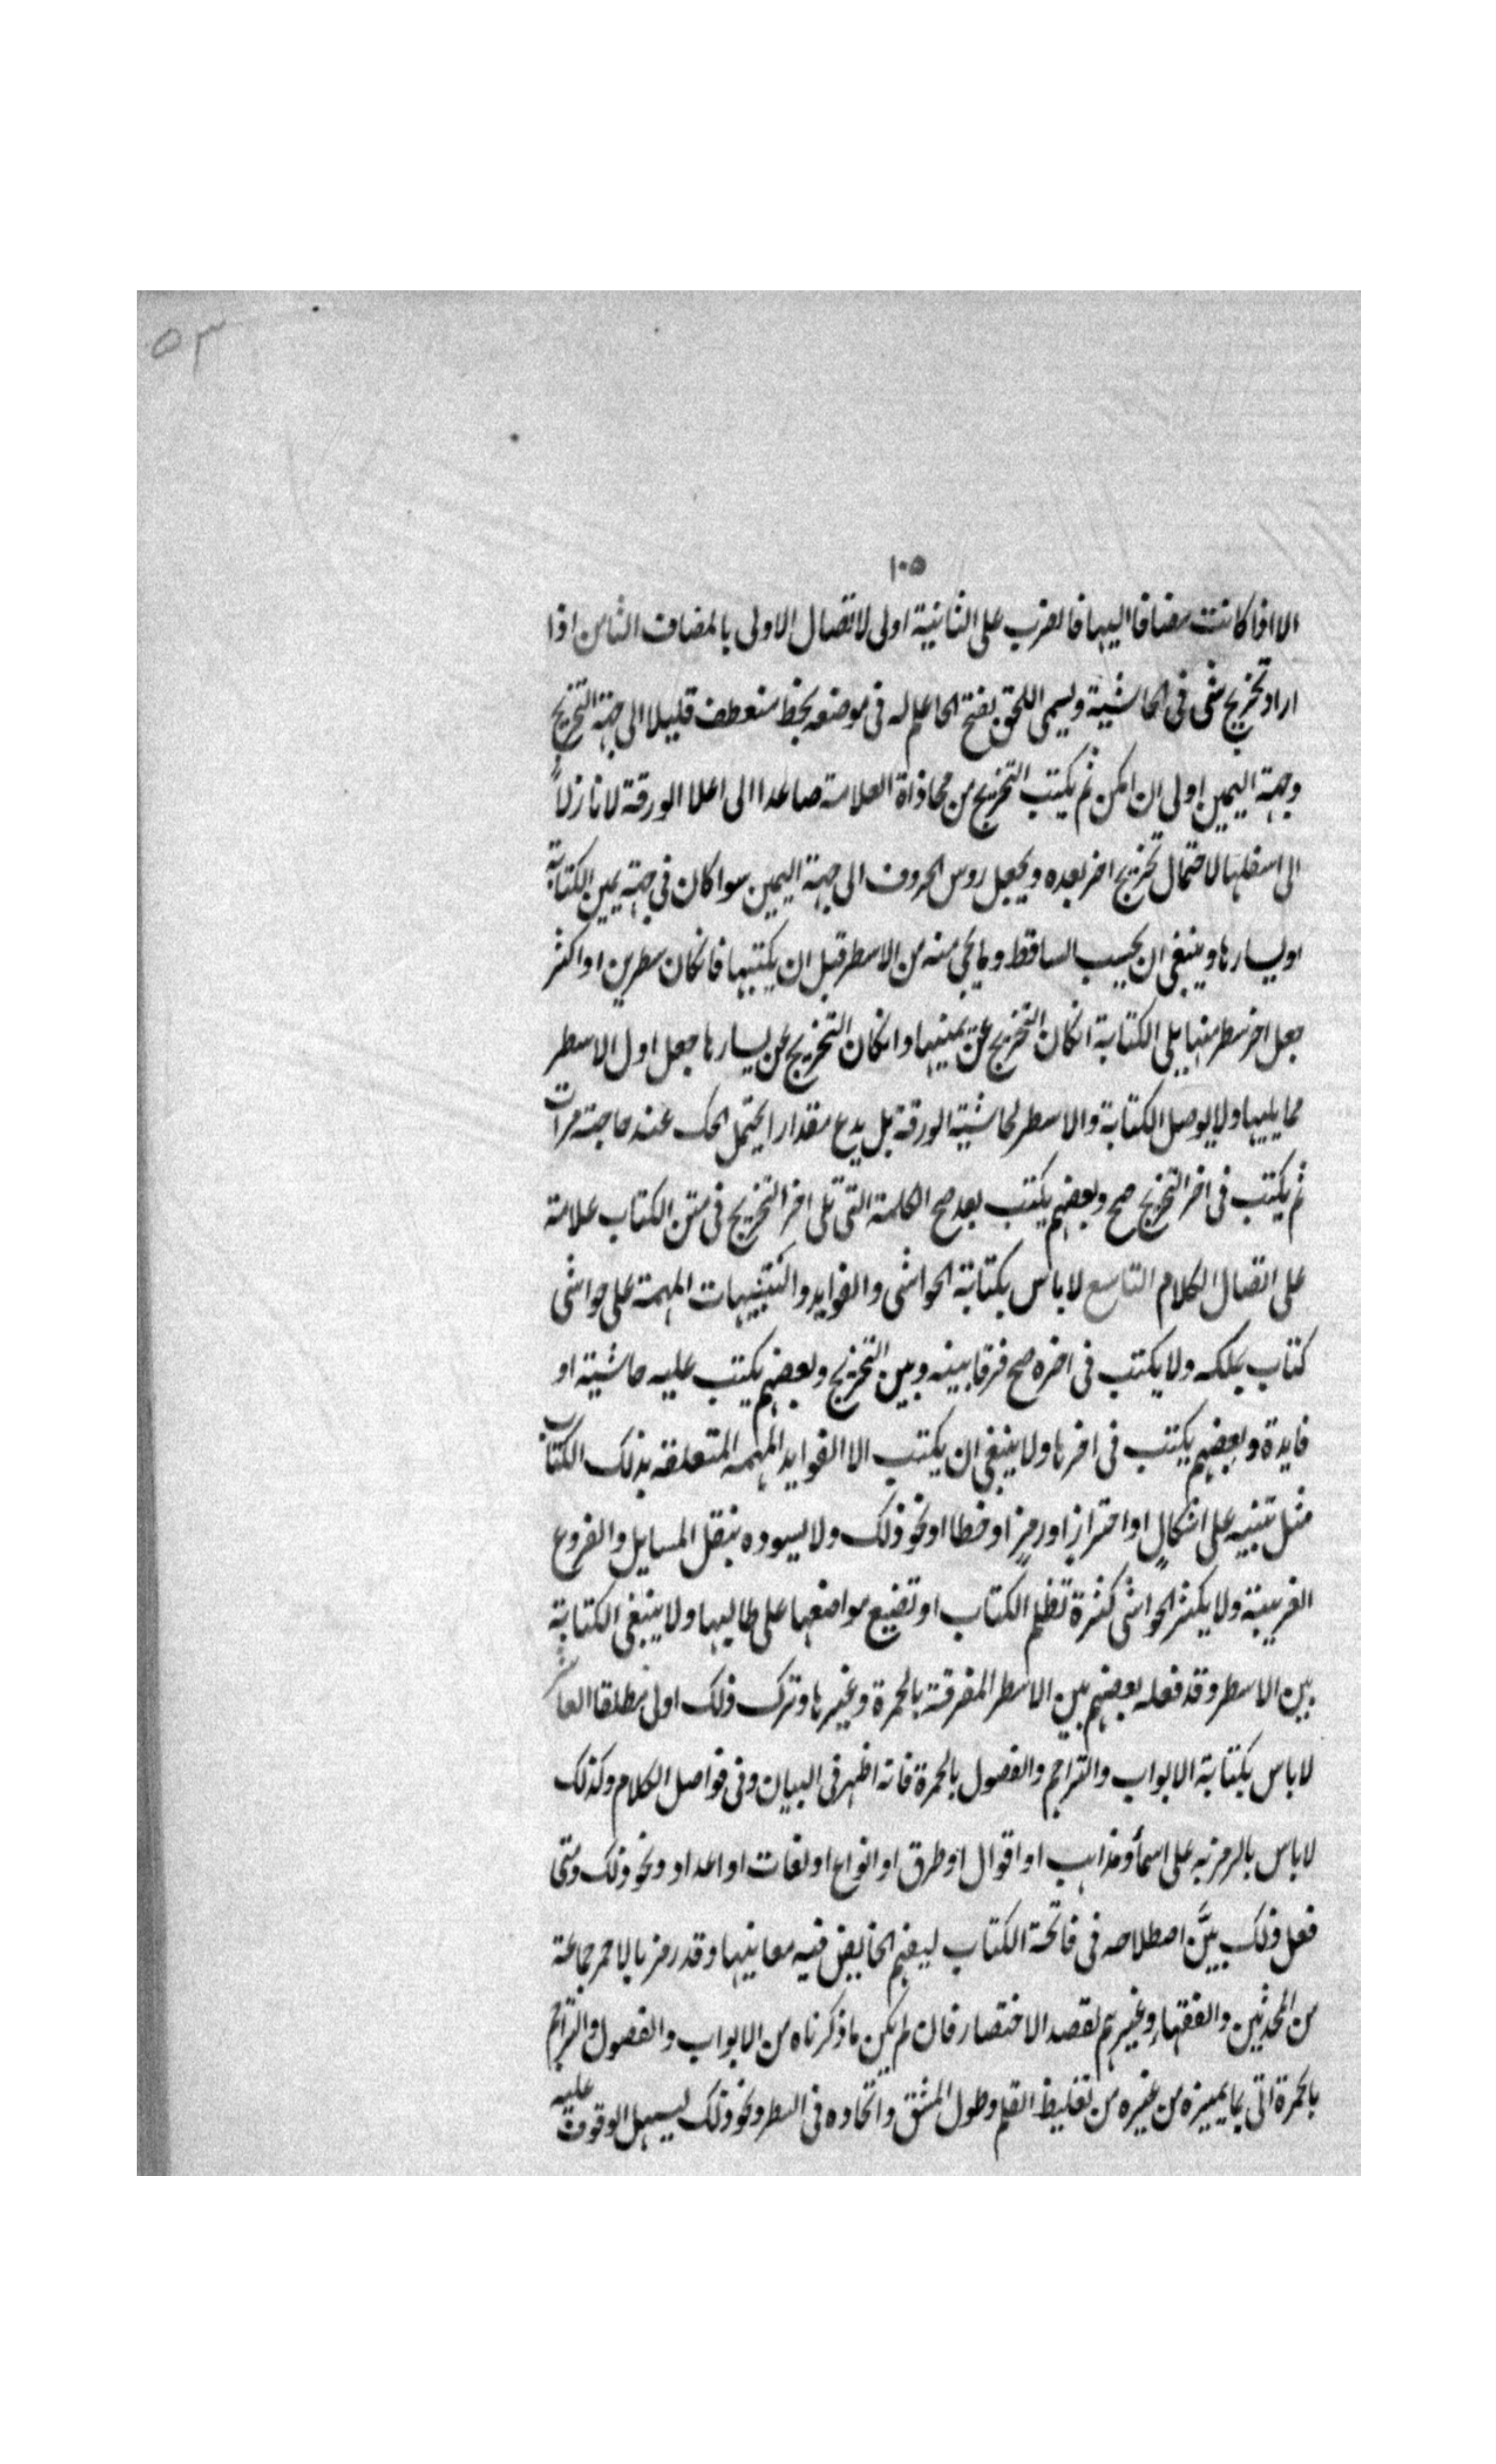 ٥٣
١٠٥
الا اذا كانت مضافا اليها فالضرب على الثانية اولى لاتصال الاولى بالمضاف الثامن اذا
اراد تخريج شى فى الحاشية ويسمى اللحق بفتح الحا علم له فى موضعه بخط منعطف قليلا الى جهة التخريج
وجهة اليمين اولى ان امكن ثم يكتب التخريج من محاذاة العلامة صاعدا الى اعلا الورقة لا نازلاً
الى اسفلها لاحتمال تخريج اخر بعده ويجعل روس الحروف الى جهة اليمين سوا كان فى جهة يمين الكتابة
او يسارها وينبغى ان يحسب الساقط وما يجى منه من الاسطر قبل ان يكتبها فانكان سطرين او اكثر
جعل اخر سطر منها يلى الكتابة انكان التخريج عن يمينها وانكان التخريج عن يسارها جعل اول الاسطر
مما يليها ولا يوصل الكتابة والاسطر لحاشية الورقة بل يدع مقدارا يحتمل الحك عند حاجته مرات
ثم يكتب فى اخر التخريج صح وبعضهم يكتب بعد صح الكلمة التى تلى اخر التخريج فى متن الكتاب علامة
على اتصال الكلام التاسع لا باس بكتابة الحواشى والفوايد والتنبيهات المهمة على حواشى
كتاب يملكه ولا يكتب فى اخره صح فرقا بينه وبين التخريج وبعضهم يكتب عليه حاشية او
فايدة وبعضهم يكتب فى اخرها ولا ينبغى ان يكتب الا الفوايد المهمه المتعلقه بذلك الكتاب
مثل تنبيه على اشكالٍ او احترازٍ او رمزٍ او خطا او نحو ذلك ولا يسوده بنقل المسايل والفروع
الغريبة ولا يكثر الحواشى كثرة تظلم الكتاب او تضيع مواضعها على طالبها ولا ينبغى الكتابة
بين الاسطر وقد فعله بعضهم بين الاسطر المفرقة بالحمرة وغيرها وترك ذلك اولى مطلقا العاشر
لا باس بكتابة الابواب والتراجم والفصول بالحمرة فانه اظهر فى البيان وفى فواصل الكلام وكذلك
لا باس بالرمز به على اسمأ ومذاهب او اقوال او طرق او انواع او لغات او اعداد ونحو ذلك ومتى
فعل ذلك بيَّن اصطلاحه فى فاتحة الكتاب ليفهم الخايض فيه معانيها وقد رمز بالاحمر جماعة
من المحدثين والفقهاء وغيرهم لقصد الاختصار فان لم يكن ما ذكرناه من الابواب والفصول والتراجم
بالحمرة اتى بما يميزه من غيره من تغليظ القلم وطول المشق واتحاده فى السطر ونحو ذلك ليسهل الوقوف عليه